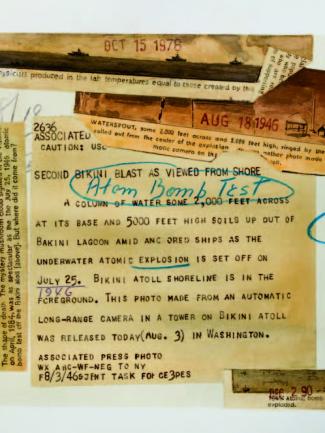 OCT 15 1976
physicists produced in the lab temperatures equal to those created by this
AUG 18 1946
WATERSPOUT, some 2,000 feet across and 5,000 feet high, ringed by
rolled out from the center of the explosion
another photo made
matic camera on
2636
ASSOCIATED
CAUTION: USE
SECOND BIKINI BLAST AS VIEWED FROM SHORE
Atom Bomb Test
A COLUMN OF WATER BONE 2,000 FEET ACROSS
AT ITS BASE AND 5000 FEET HIGH SOILS UP OUT OF
BAKINI LAGOON AMID ANCORED SHIPS AS THE
UNDERWATER ATOMIC EXPLOSION IS SET OFF ON
JULY 25. BIKINI ATOLL SHORELINE IS IN THE
1946
FOREGROUND. THIS PHOTO MADE FROM AN AUTOMATIC
LONG-RANGE CAMERA IN A TOWER ON BIKINI ATOLL
WAS RELEASED TODAY(AUG. 3) IN WASHINGTON.
ASSOCIATED PRESS PHOTO
WX ARC-WF-NEG TO NY
F8/3/46 JENT TASK FOR CE3PES
The shape of death. The mystery
on April, 1984, was as spectacular as the July 25, 1946 atomic
bomb test off the Bikini atoll [above]. But where did it come from?
2 90
atomic bomb
exploded.